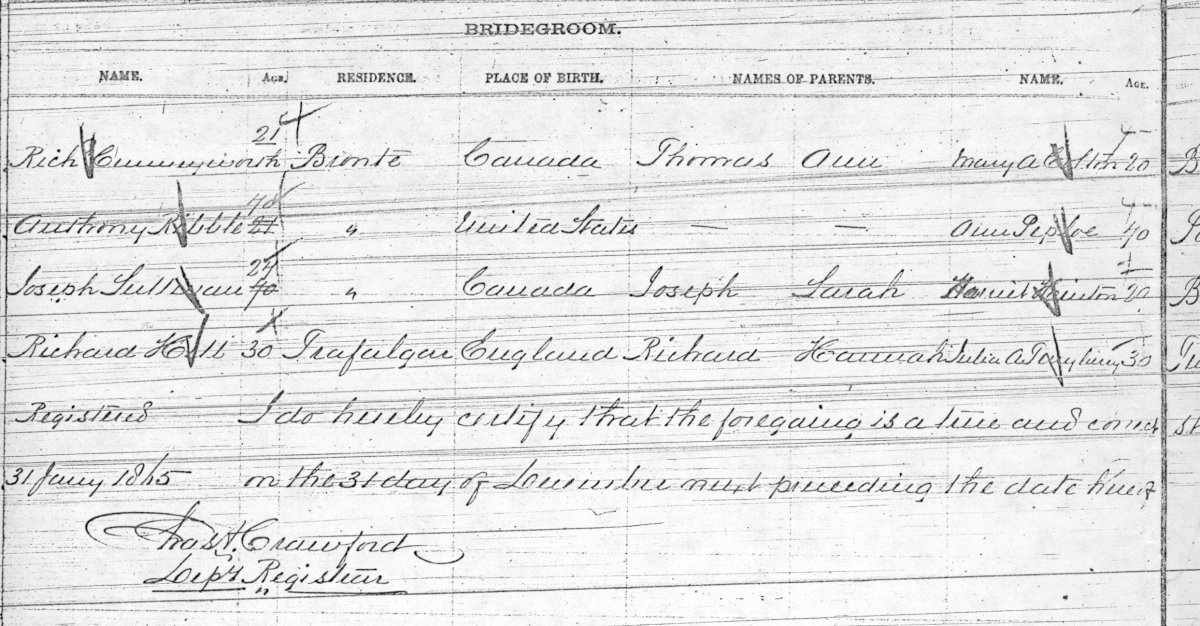 BRIDEGROOM.
NAME. AGE. RESIDENCE. PLACE OF BIRTH. NAMES OF PARENTS. NAME. AGE.
21
Rich Bronte Canada Thomas Ann Mary A 20 B
40
Anthony Ribble 21 " United States — — Ann Peploe 40
24
Joseph Sullivan 40 " Canada Joseph Sarah Harriet 20 B
Richard Hill 30 Trafalgar England Richard Hannah Julia A 30
Registered I do hereby certify that the foregoing is a true and correct
31 Jany 1865 on the 31 day of December next preceding the date hereof
Chas A. Crawford
Depy Registrar